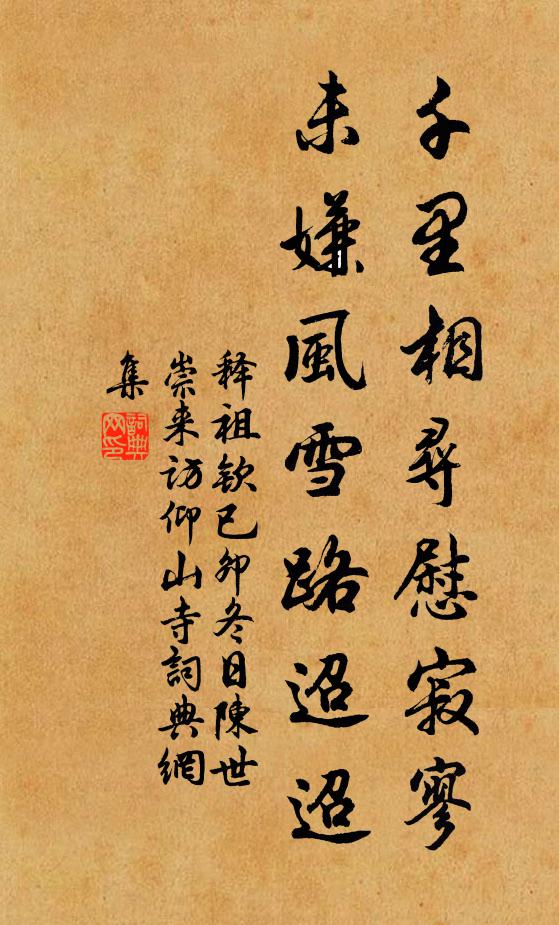 千里相尋慰寂寥
未嫌風雪路迢迢
释祖钦已卯冬日陳世
崇来访仰山寺詞典網
集
詞典网印